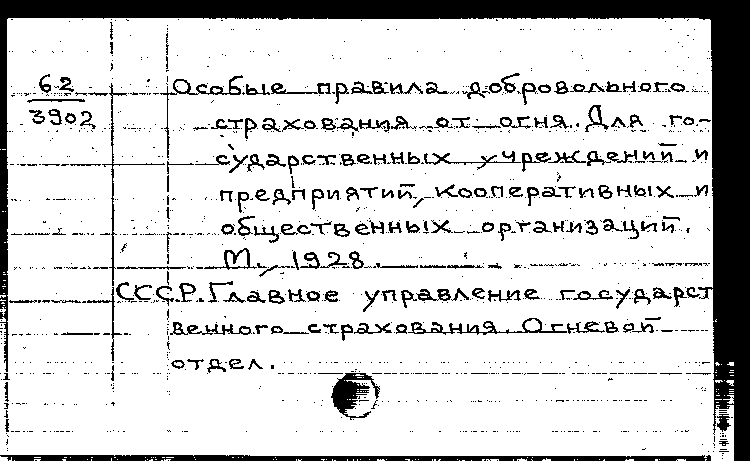 62
3902
Особые правила добровольного
страхования от огня. Для го-
сударственных учреждений и
предприятий, кооперативных и
общественных организаций.
М., 1928.
СССР. Главное управление государст
венного страхования. Огневой
отдел.